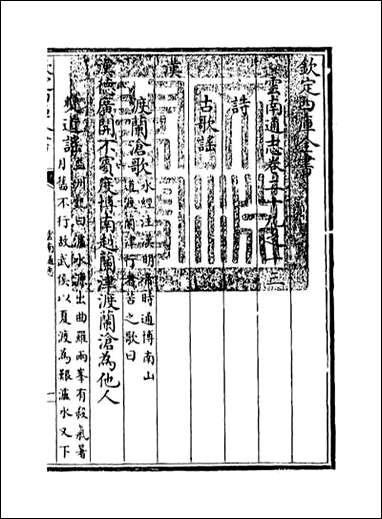 欽定四庫全書
雲南通志卷二十九之十二
詩
古歌謡
漢
渡蘭滄歌 水經注漢明帝時通博南山
道渡蘭津行者苦之歌曰
漢德廣開不賓度博南越蘭津渡蘭滄為他人
道謡 曰瀘水出曲羅兩峯有殺氣暑
月舊不行故武侯以夏渡為艱瀘水又下
雲南通志